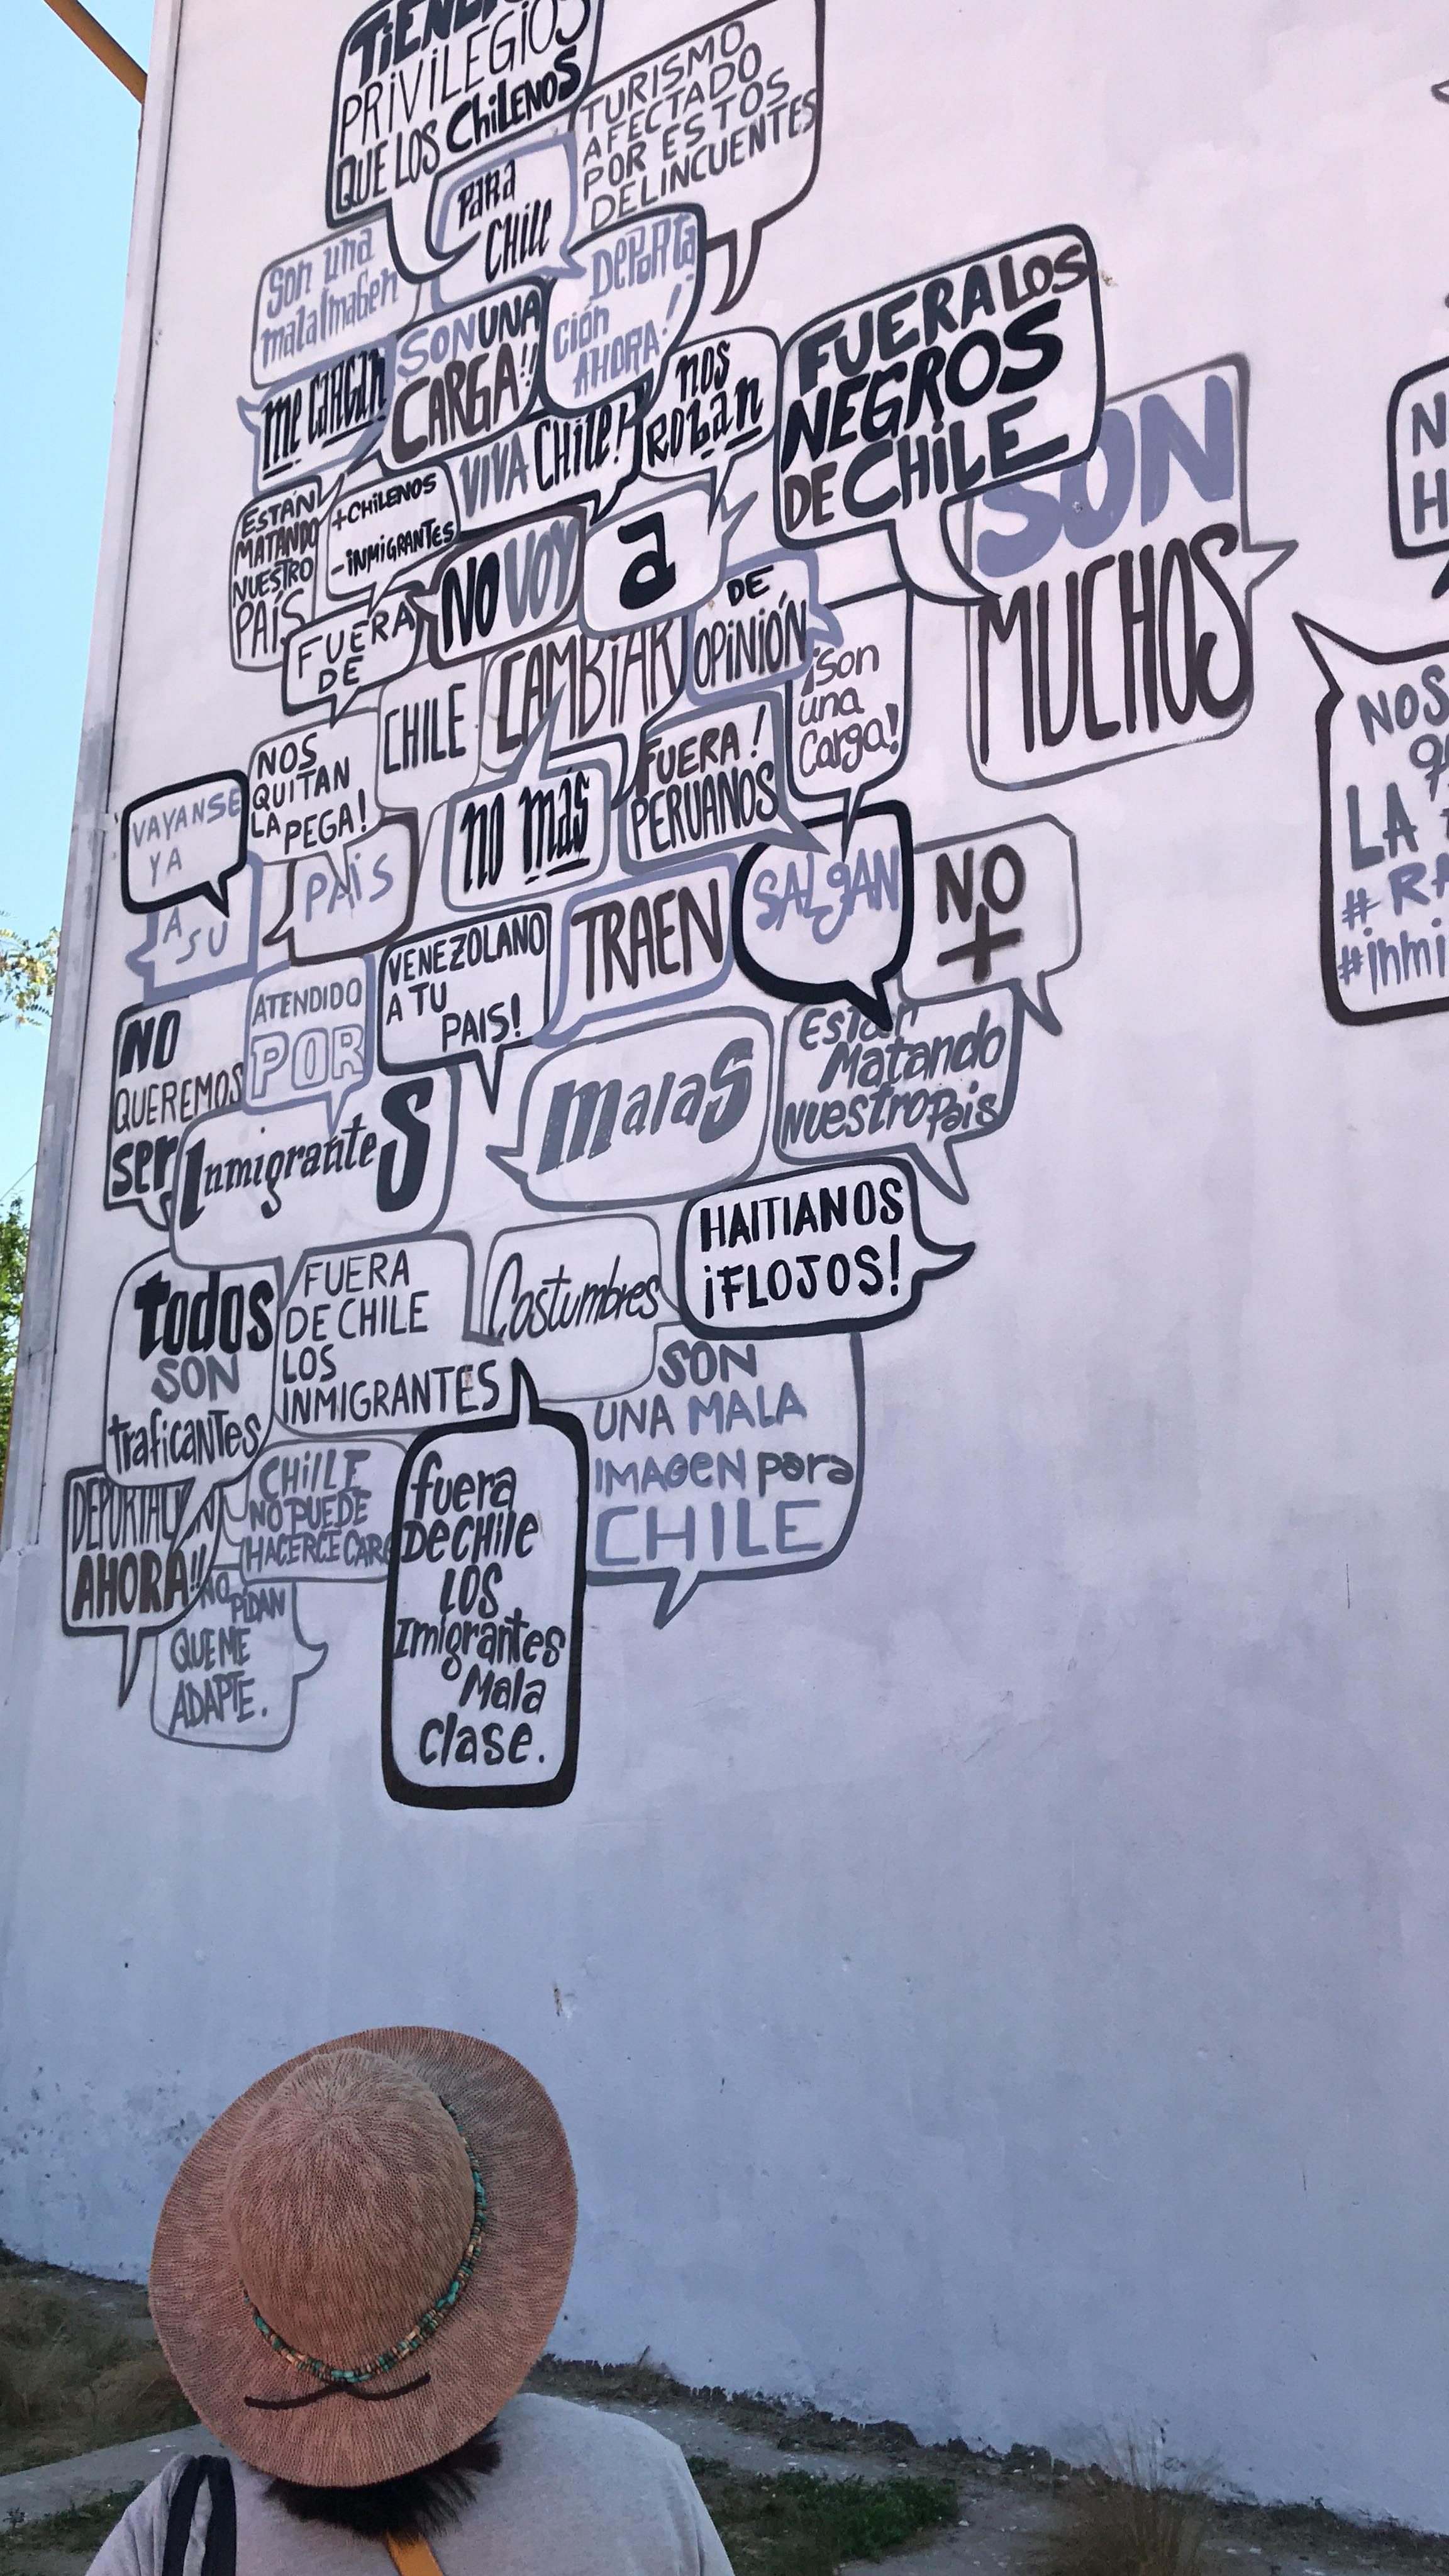 PRIVILEGIOS
QUE LOS CHILENOS
TURISMO
AFECTADO
POR ESTOS
DELINCUENTES
PARA
CHILE
Son una
mala Imagen
DePORTa
ción
AHORA!
SON UNA
CARGA!!
me CARGan
VIVA CHILE!
nos
ROban
FUERA LOS
NEGROS
DE CHILE
SON
MUCHOS
ESTÁN
MATANDO
NUESTRO
PAÍS
+CHILENOS
-INMIGRANTES
NO VOY
a
CAMBIAR
DE
OPINIÓN
FUERA
DE
CHILE
¡Son
una
Carga!
NOS
QUITAN
LA PEGA!
VAYANSE
YA
A
SU
PAÍS
no más
FUERA!
PERUANOS
SALgAN
NO
+
VENEZOLANO
A TU
PAIS!
TRAEN
malaS
Están
Matando
Nuestro Pais
NO
QUEREMOS
ser
ATENDIDO
POR
InmigranteS
HAITIANOS
¡FLOJOS!
Todos
SON
TraficanTes
FUERA
DE CHILE
LOS
INMIGRANTES
Costumbres
SON
UNA MALA
IMAGEN para
CHILE
AHORA!!
NO PUEDE
HACERCE CARG
NO
PIDAN
QUE ME
ADAPTE.
fuera
De CHile
LOS
Imigrantes
Mala
Clase.
N
H
NOS
LA
#RA
#inmi